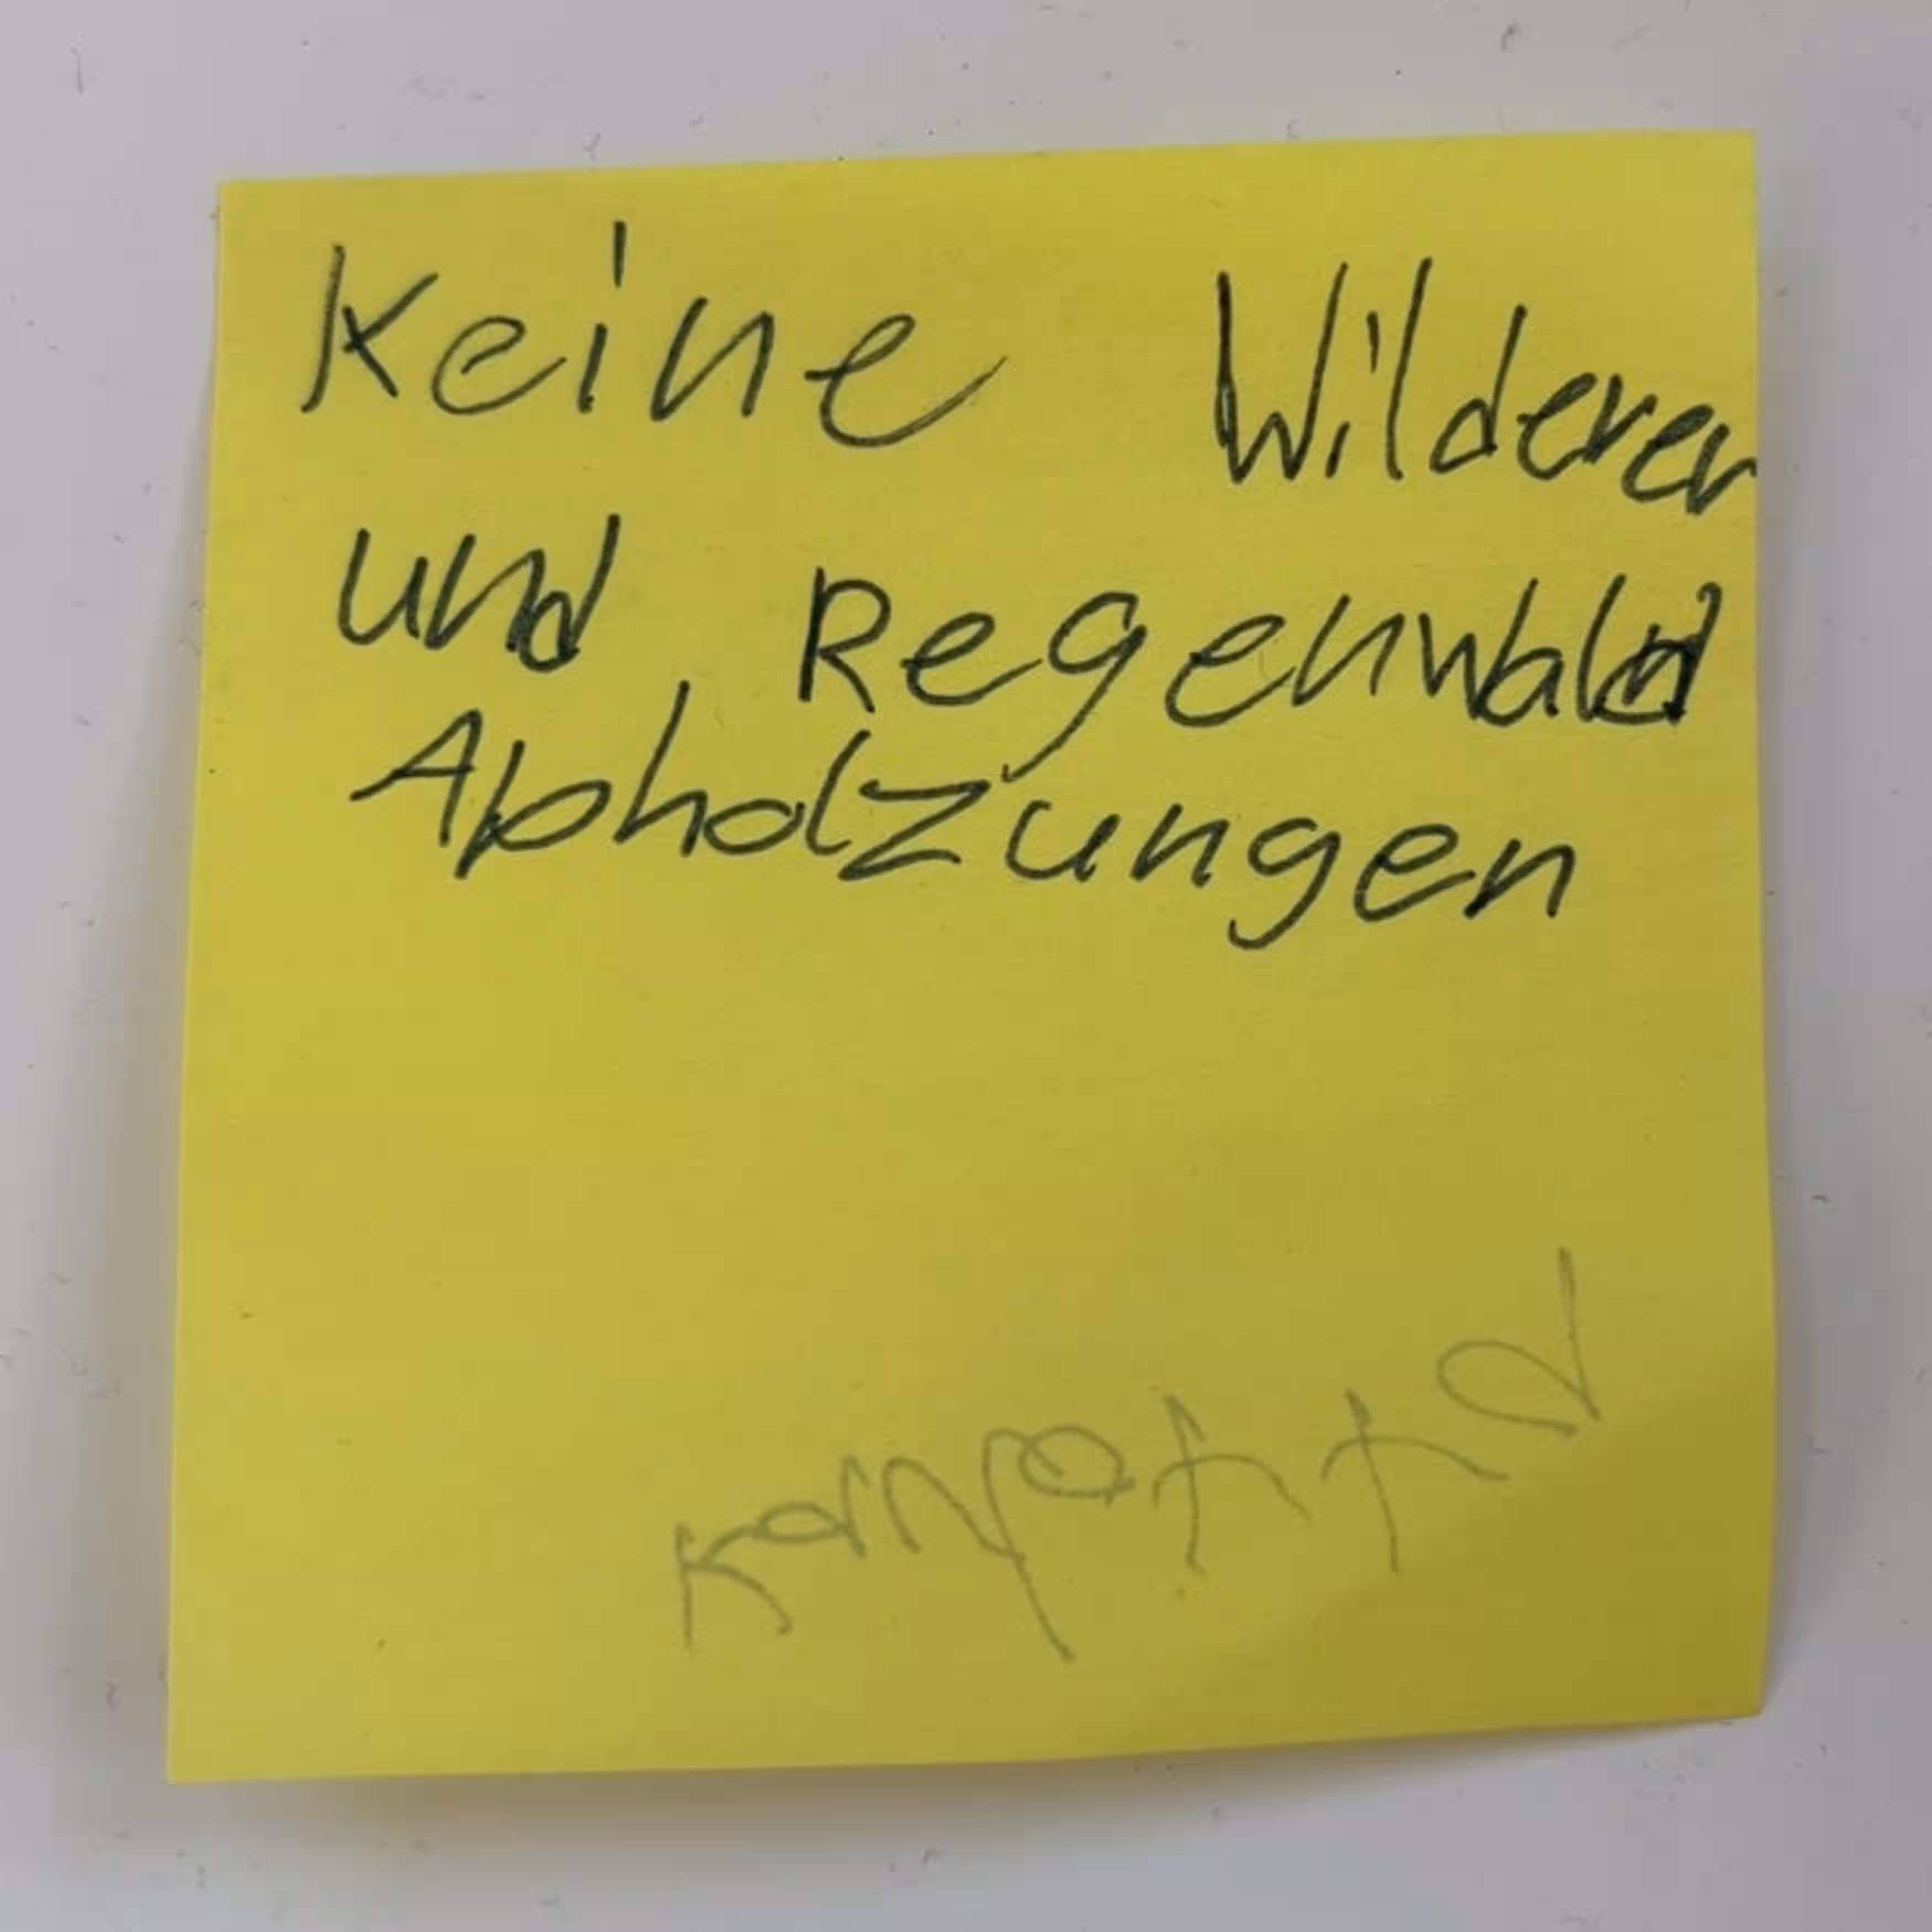 Keine Wilderer
und Regenwald
Abholzungen